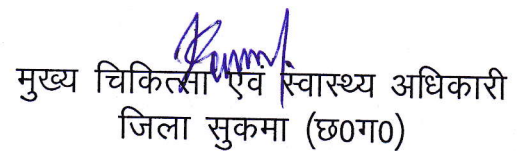 मुख्य चिकित्सा एवं स्वास्थ्य अधिकारी
जिला सुकमा (छ0ग0)